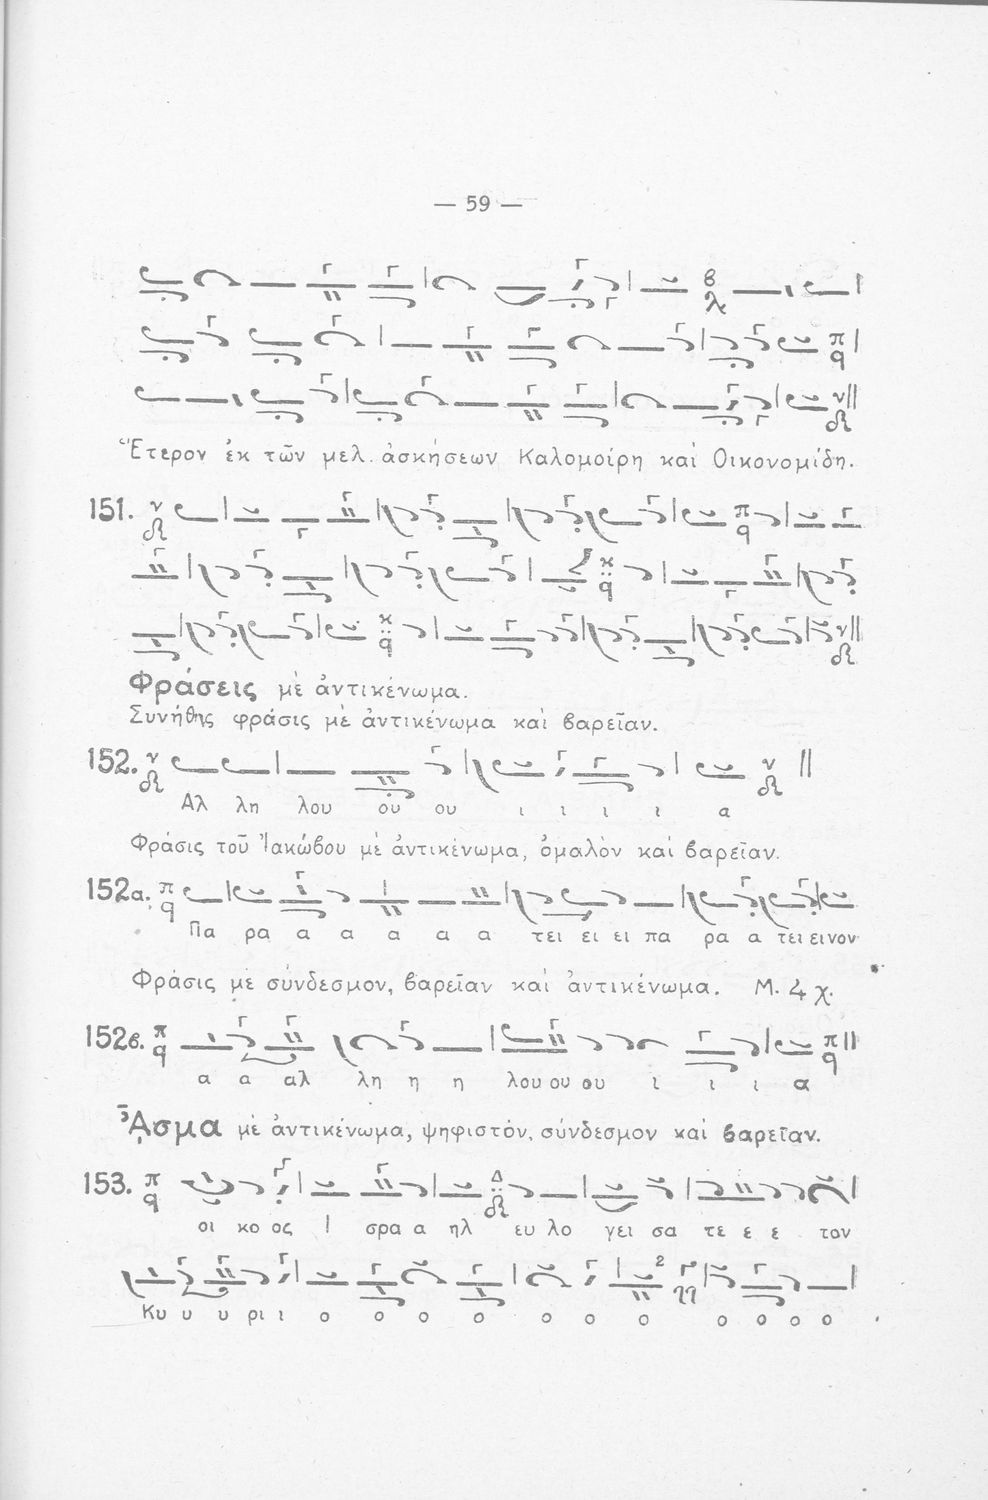 — 59 —
Ἕτερον ἐκ τῶν μελ. ἀσκήσεων Καλομοίρη καὶ Οἰκονομίδη.
151.
Φράσεις μὲ ἀντικένωμα.
Συνήθης φράσις μὲ ἀντικένωμα καὶ βαρεῖαν.
152.
Αλ λη λου ου ου ι ι ι ι α
Φράσις τοῦ Ἰακώβου μὲ ἀντικένωμα, ὁμαλὸν καὶ βαρεῖαν.
152α.
Πα ρα α α α α α τει ει ει πα ρα α τει ει νον
Φράσις μὲ σύνδεσμον, βαρεῖαν καὶ ἀντικένωμα. Μ. 4 χ.
152β.
α α αλ λη η η λου ου ου ι ι ι α
ᾎσμα μὲ ἀντικένωμα, ψηφιστόν, σύνδεσμον καὶ βαρεῖαν.
153.
οι κο ος Ι σρα α ηλ ευ λο γει σα τε ε ε τον
Κυ υ υ ρι ι ο ο ο ο ο ο ο ο ο ο ο